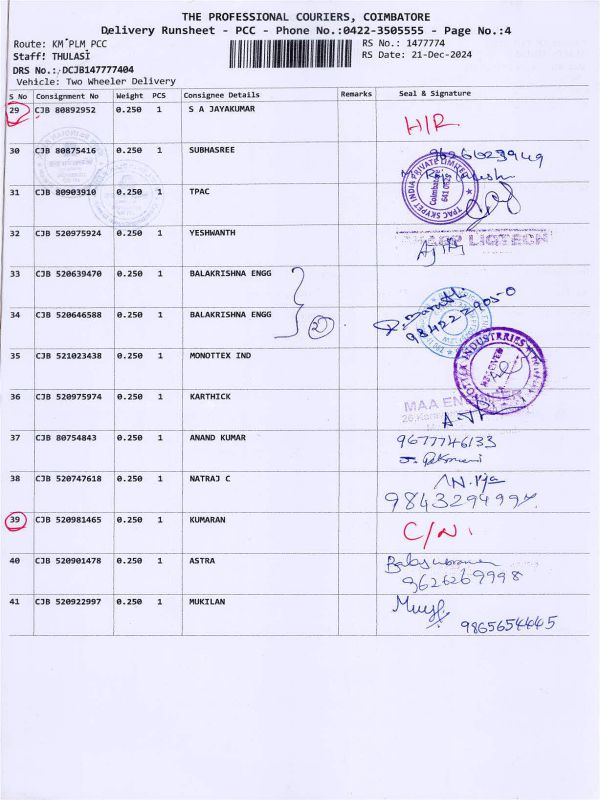 THE PROFESSIONAL COURIERS, COIMBATORE
Delivery Runsheet - PCC - Phone No.:0422-3505555 - Page No.:4
Route: KM PLM PCC
RS No.: 1477774
Staff: THULASI
RS Date: 21-Dec-2024
DRS No.: DCJB147777404
Vehicle: Two Wheeler Delivery
S No Consignment No Weight PCS Consignee Details Remarks Seal & Signature
29 CJB 80892952 0.250 1 S A JAYAKUMAR H/R
30 CJB 80875416 0.250 1 SUBHASREE
31 CJB 80903910 0.250 1 TPAC TPAC SKYPET INDIA PRIVATE LIMITED Coimbatore
32 CJB 520975924 0.250 1 YESHWANTH LIQTECH
33 CJB 520639470 0.250 1 BALAKRISHNA ENGG
34 CJB 520646588 0.250 1 BALAKRISHNA ENGG 2 9842229050
35 CJB 521023438 0.250 1 MONOTTEX IND MONOTTEX INDUSTRRIES RECEIVED
36 CJB 520975974 0.250 1 KARTHICK MAA
37 CJB 80754843 0.250 1 ANAND KUMAR 9677746133
38 CJB 520747618 0.250 1 NATRAJ C
39 CJB 520981465 0.250 1 KUMARAN C/N
40 CJB 520901478 0.250 1 ASTRA 9626269998
41 CJB 520922997 0.250 1 MUKILAN 9865654445